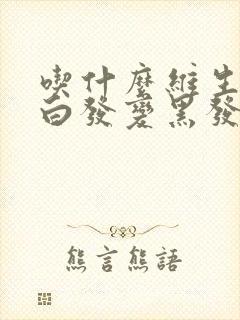 喫什麼維生
白發變黑發
熊言熊語